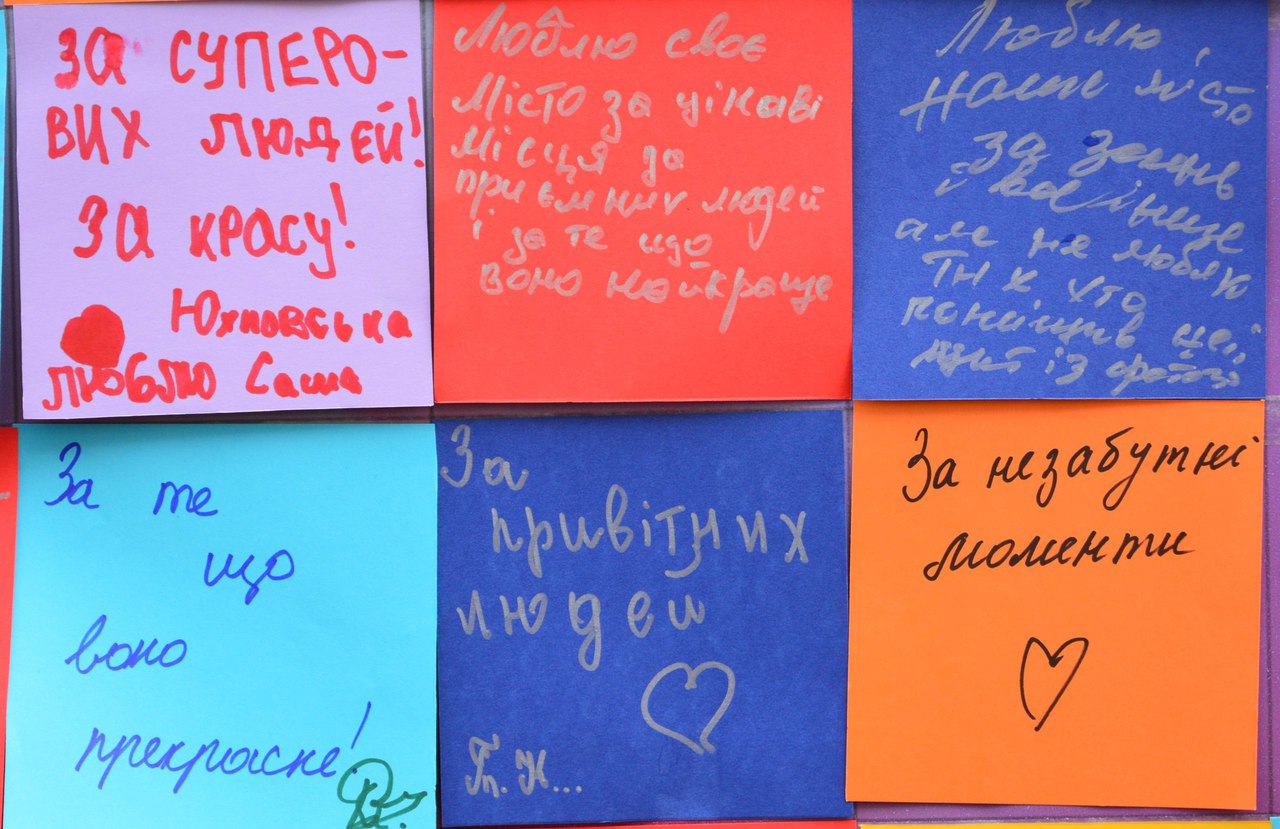 ЗА СУПЕРО-
ВИХ ЛЮДЕЙ!
ЗА КРАСУ!
Юхновська
люблю Саша
Люблю своє
місто за цікаві
місця за
приємних людей
і за те що
воно найкраще
Люблю
наше місто
за
але не люблю
тих хто
цей
щит із фото
За те
що
воно
прекрасне!
За
привітних
людей
Г.П. Н...
За незабутні
моменти